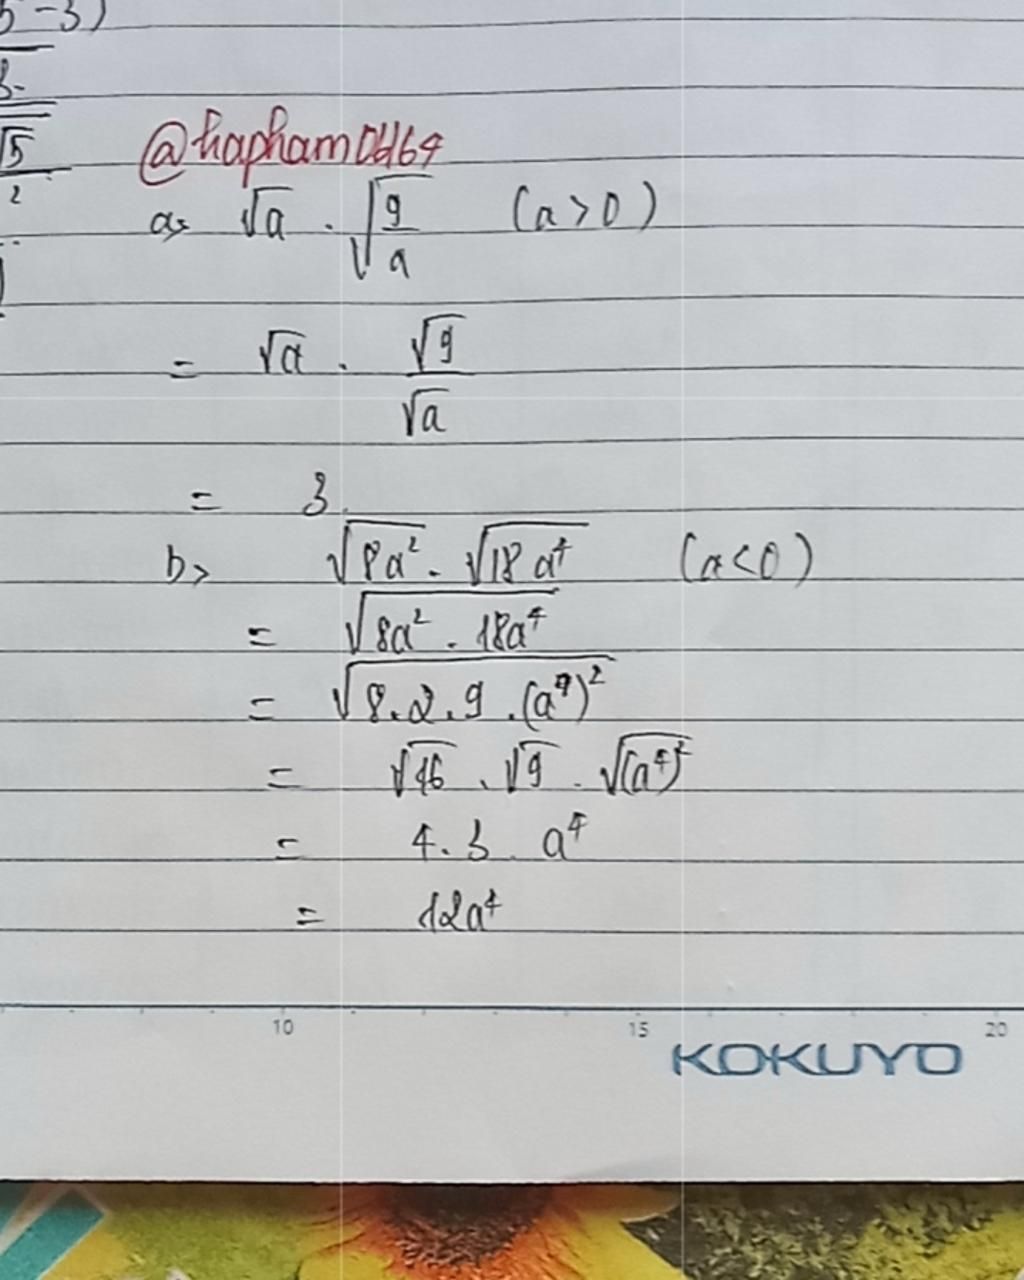 5 - 3)
8
√5
2
@hapham0464
a> √a . √(9/a) (a > 0)
= √a . √9/√a
= 3
b> √(8a²) . √(18a⁴) (a < 0)
= √(8a² . 18a⁴)
= √(8.2.9.(a⁴)²)
= √16 . √9 . √(a⁴)²
= 4.3.a⁴
= 12a⁴
10 15 20
KOKUYO